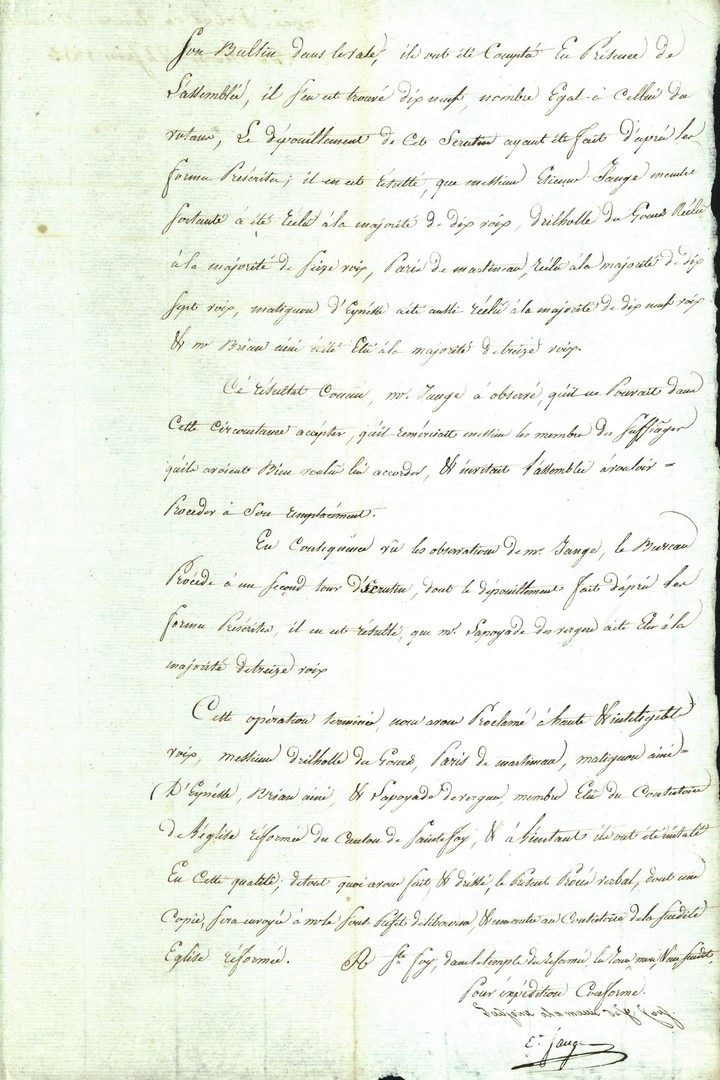 Son Bultin dans le vase, ils ont été Compté En Présence de
L'assemblée, il s'en est trouvé dix neuf, nombre Egal à Cellui du
votans, Le dépouillement de Cet Scrutin ayant été fait d'après les
formes Prescrites; il en est résulté, que messieurs Etienne Jauge membre
sortants à été réélu à la majorité de dix voix, drilholle du Gours Réélu
à la majorité de seize voix, Paris de martineau, réélu à la majorité de dix
sept voix, matignon d'Eynesse a été aussi réélu à la majorité de dix neuf voix
& mr Brian ainé a été Elu à la majorité de treize voix.
Cé résultat Connu, mr. Jauge à observé, qu'il ne Pouvait dans
Cette circonstance accepter, qu'il remérciait messieurs les membres des suffrages
qu'ils avoient Bien voulu lui accorder, & invitait l'assemblée à vouloir =
Proceder à Son remplacément.
En Conséquence vû les observations de mr. Jauge, le Bureau
Procéde à un second tour d'scrutin, dont le dépouillement fait d'après les
formes Préscrites, il en est résulté, que mr. Lapoyade desvergne a été Elu à la
majorité de treize voix
Cette opération terminée, nous avons Proclamé à haute & inteligible
voix, messieurs drilholle du Gours, Paris de martineau, matignon ainé =
(D'Eynesse, Brian ainé, & Lapoyade desvergne, membres Elu du Consistoire
de l'église réformée du Canton de Sainte foy, & à l'instant ils ont été installé
En Cette qualité; de tout quoi avons fait, & dréssé le Présent Procé verbal, dont une
Copie, sera envoyé à mr le sous Préfet de libourne, & une autre au Consistoire de la susdite
Eglise réformée. A Ste. foy, dans le temple des réformés, le Jour, mois & an susdit.
Pour éxpédition Conforme.
Ee. Jauge